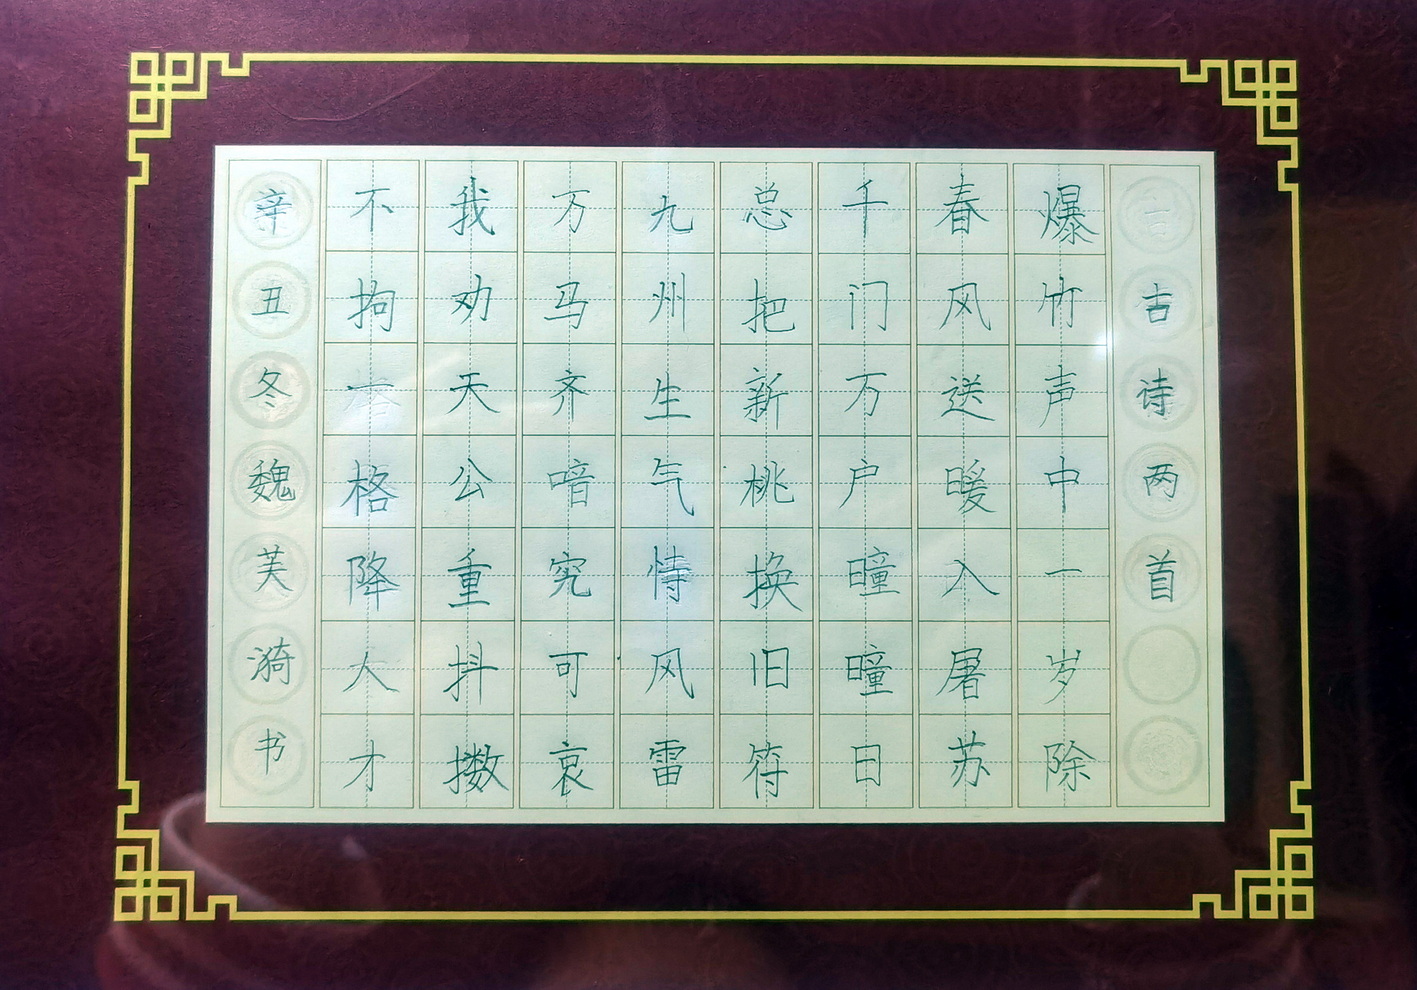 吉诗两首
爆竹声中一岁除
春风送暖入屠苏
千门万户曈曈日
总把新桃换旧符
九州生气恃风雷
万马齐喑究可哀
我劝天公重抖擞
不拘一格降人才
辛丑冬魏芙漪书